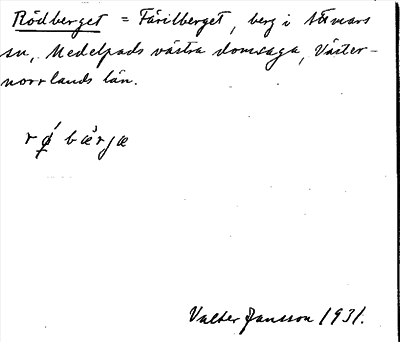 Rödberget = Fårilberget, berg i Stömars
sn, Medelpads västra domsaga, Väster-
norrlands län.
rǿ bæ̀rjæ
Valter Jansson 1931.